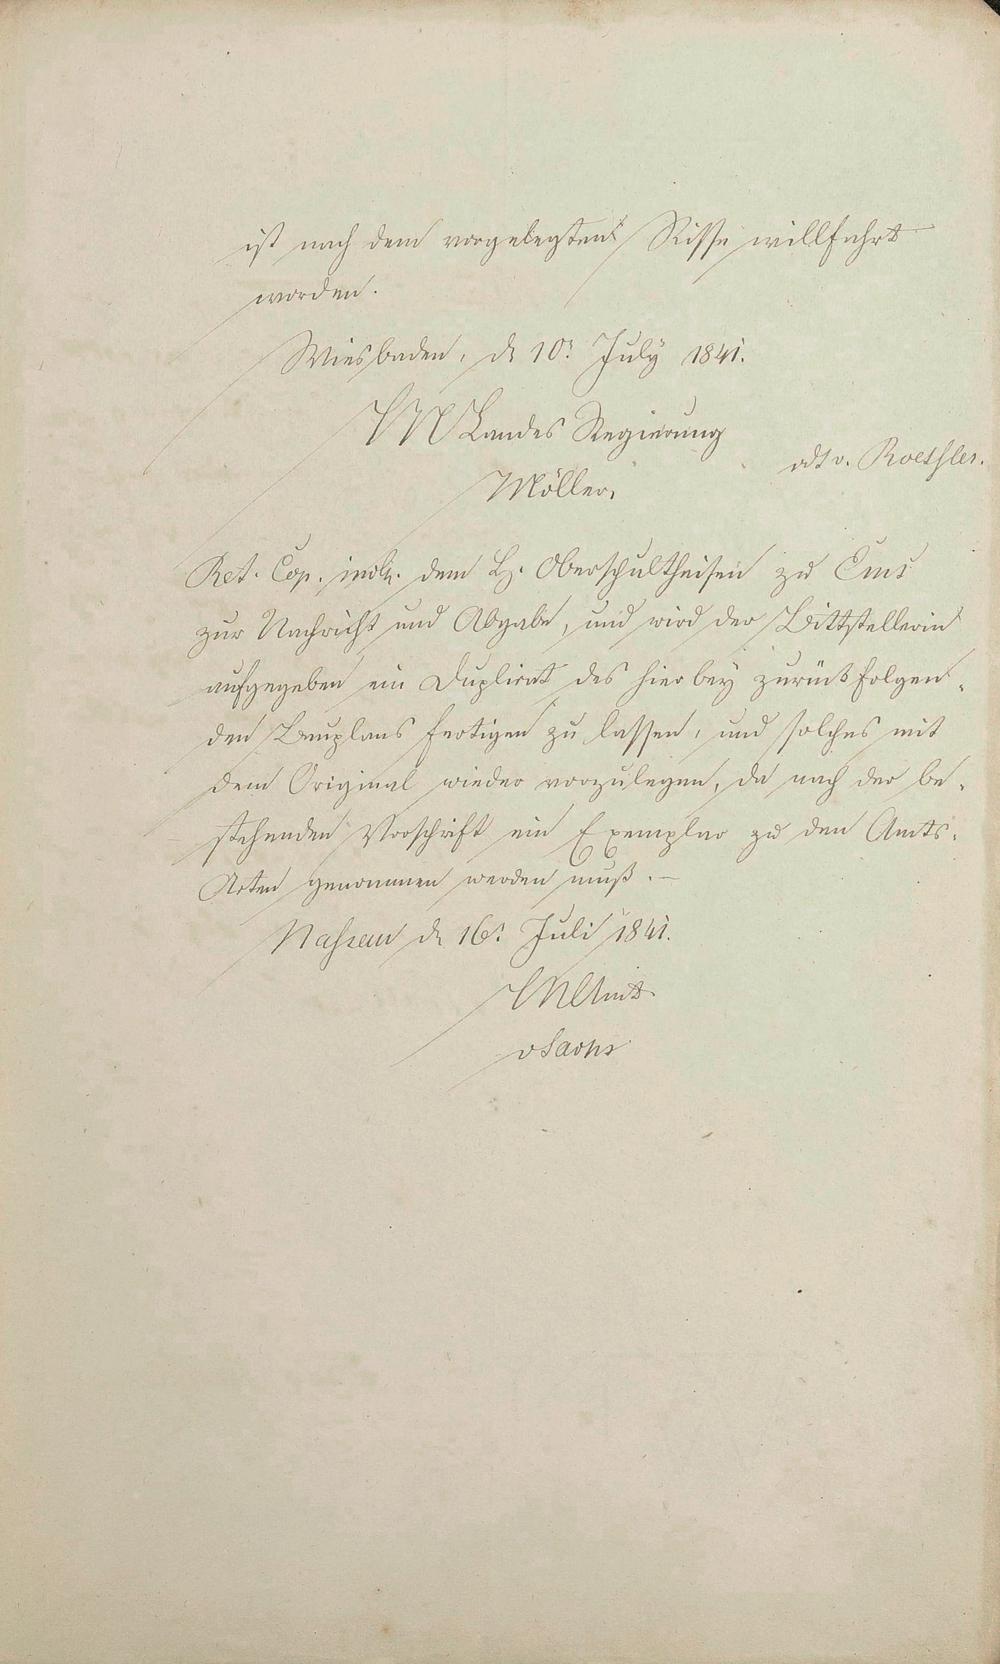 ist nach dem vorgelegten Risse willfahrt
worden.
Wiesbaden, d 10t July 1841.
HN Landes Regierung
Möller.
vdt v. Roessler.
Ret. Cop. dem H. Oberschultheisen zu Ems
zur Nachricht und Abgabe, und wird der Bittstellerin
aufgegeben ein Duplicat des hierbey zurückfolgen-
den Bauplans fertigen zu lassen, und solches mit
dem Original wieder vorzulegen, da nach der be-
stehenden Vorschrift ein Exemplar zu den Amts-
Acten genommen werden muß.—
Nassau d 16t Juli 1841.
HN Amt